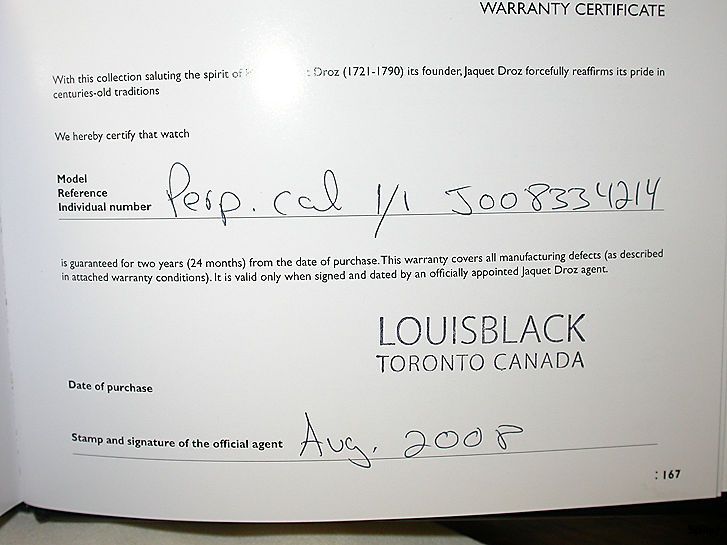 WARRANTY CERTIFICATE
With this collection saluting the spirit of Droz (1721-1790) its founder, Jaquet Droz forcefully reaffirms its pride in
centuries-old traditions
We hereby certify that watch
Model
Reference
Individual number Perp. cal 1/1 J008334214
is guaranteed for two years (24 months) from the date of purchase. This warranty covers all manufacturing defects (as described
in attached warranty conditions). It is valid only when signed and dated by an officially appointed Jaquet Droz agent.
LOUISBLACK
TORONTO CANADA
Date of purchase
Stamp and signature of the official agent Aug. 2008
: 167